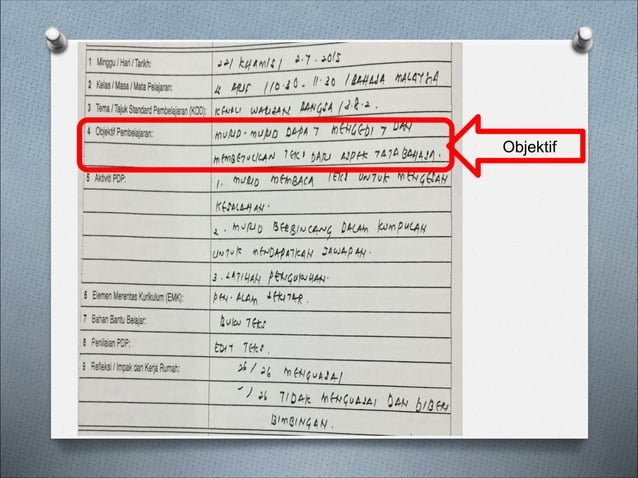 1 Minggu / Hari / Tarikh: 22 / KHAMIS / 2.7.2015
2 Kelas / Masa / Mata Pelajaran: 4 ARIF / 10.30 - 11.30 / BAHASA MALAYSIA
3 Tema / Tajuk Standard Pembelajaran (KOD): KENALI WARISAN BANGSA / 3.8.2.
4 Objektif Pembelajaran: MURID-MURID DAPAT MENGEDIT DAN
MEMBETULKAN TEKS DARI ASPEK TATABAHASA.
Objektif
5 Aktiviti PDP: 1. MURID MEMBACA TEKS UNTUK MENGESAN
KESALAHAN.
2. MURID BERBINCANG DALAM KUMPULAN
UNTUK MENDAPATKAN JAWAPAN.
3. LATIHAN PENGUKUHAN.
6 Elemen Merentas Kurikulum (EMK): PEN. ALAM SEKITAR.
7 Bahan Bantu Belajar: BUKU TEKS
8 Penilaian PDP: EDIT TEKS.
9 Refleksi / Impak dan Kerja Rumah: 26 / 26 MENGUASAI
/ 26 TIDAK MENGUASAI DAN DIBERI
BIMBINGAN.